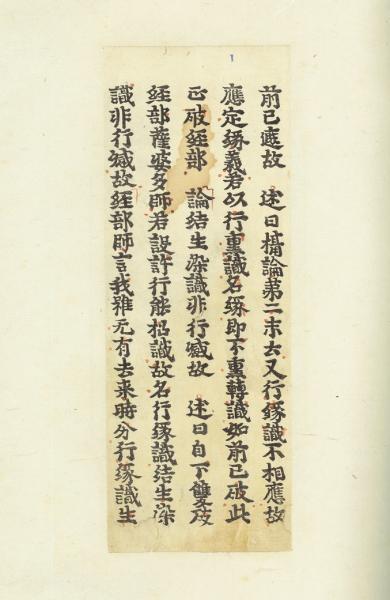 1
前已遮故　述曰攝論第二末云又行緣識不相應故
應定緣義若以行熏識名緣即不熏轉識如前已破此
正破經部　論結生染識非行感故　述曰自下雙破
經部薩婆多師若設許行能招識故名行緣識結生染
識非行感故經部師言我雖无有去來時分行緣識生